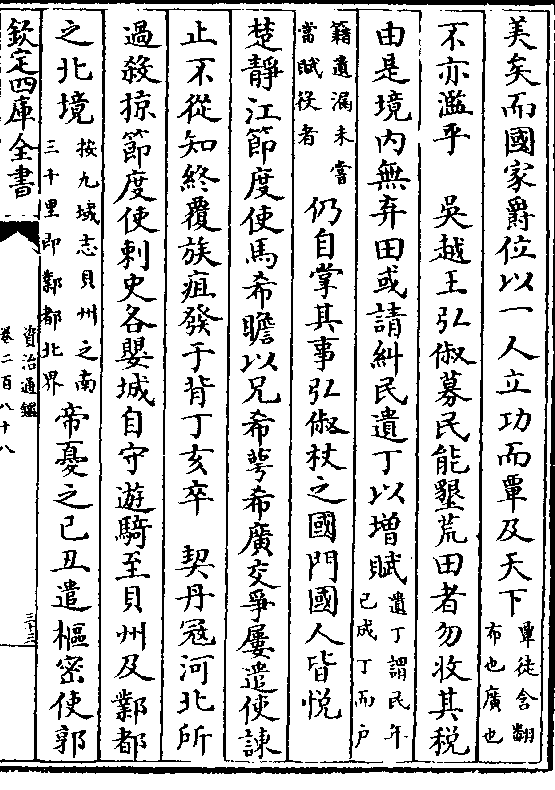 美矣而國家爵位以一人立功而覃及天下覃徒含翻
布也廣也
不亦濫乎　吳越王弘俶募民能墾荒田者勿收其稅
由是境内無弃田或請糾民遺丁以增賦遺丁謂民年
已成丁而戶
籍遺漏未嘗
當賦役者仍自掌其事弘俶杖之國門國人皆悅
楚靜江節度使馬希瞻以兄希萼希廣交爭屢遣使諫
止不從知終覆族疽發于背丁亥卒　契丹寇河北所
過殺掠節度使刺史各嬰城自守遊騎至貝州及鄴都
之北境按九域志貝州之南
三十里即鄴都北界帝憂之己丑遣樞密使郭
欽定四庫全書
資治通鑑
卷二百八十八